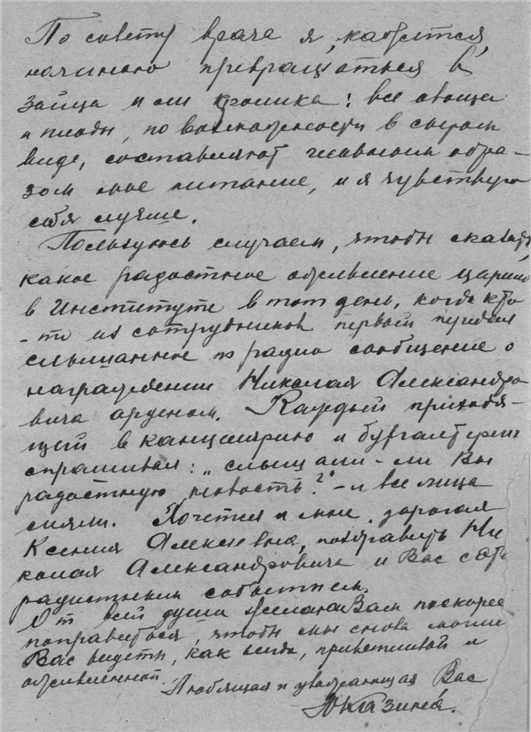 По совету врача я, кажется,
начинаю превращаться в
зайца или кролика: все овощи
и плоды, по возможности в сыром
виде, составляют главным обра-
зом мое питание, и я чувствую
себя лучше.
Пользуюсь случаем, чтобы сказать,
какое радостное оживление царило
в Институте в тот день, когда кто
-то из сотрудников первый передал
слышанное по радио сообщение о
награждении Николая Александро
вича орденом. Каждый приходя-
щий в канцелярию и бухгалтерию
спрашивал: „слышали-ли Вы
радостную новость?" - и все лица
сияли. Хочется и мне, дорогая
Ксения Алексеевна, поздравить Ни
колая Александровича и Вас с этим
радостным событием.
От всей души желаю Вам поскорее
поправиться, чтобы мы снова могли
Вас видеть, как всегда, приветливой и
оживленной. Любящая и уважающая Вас
Казина.